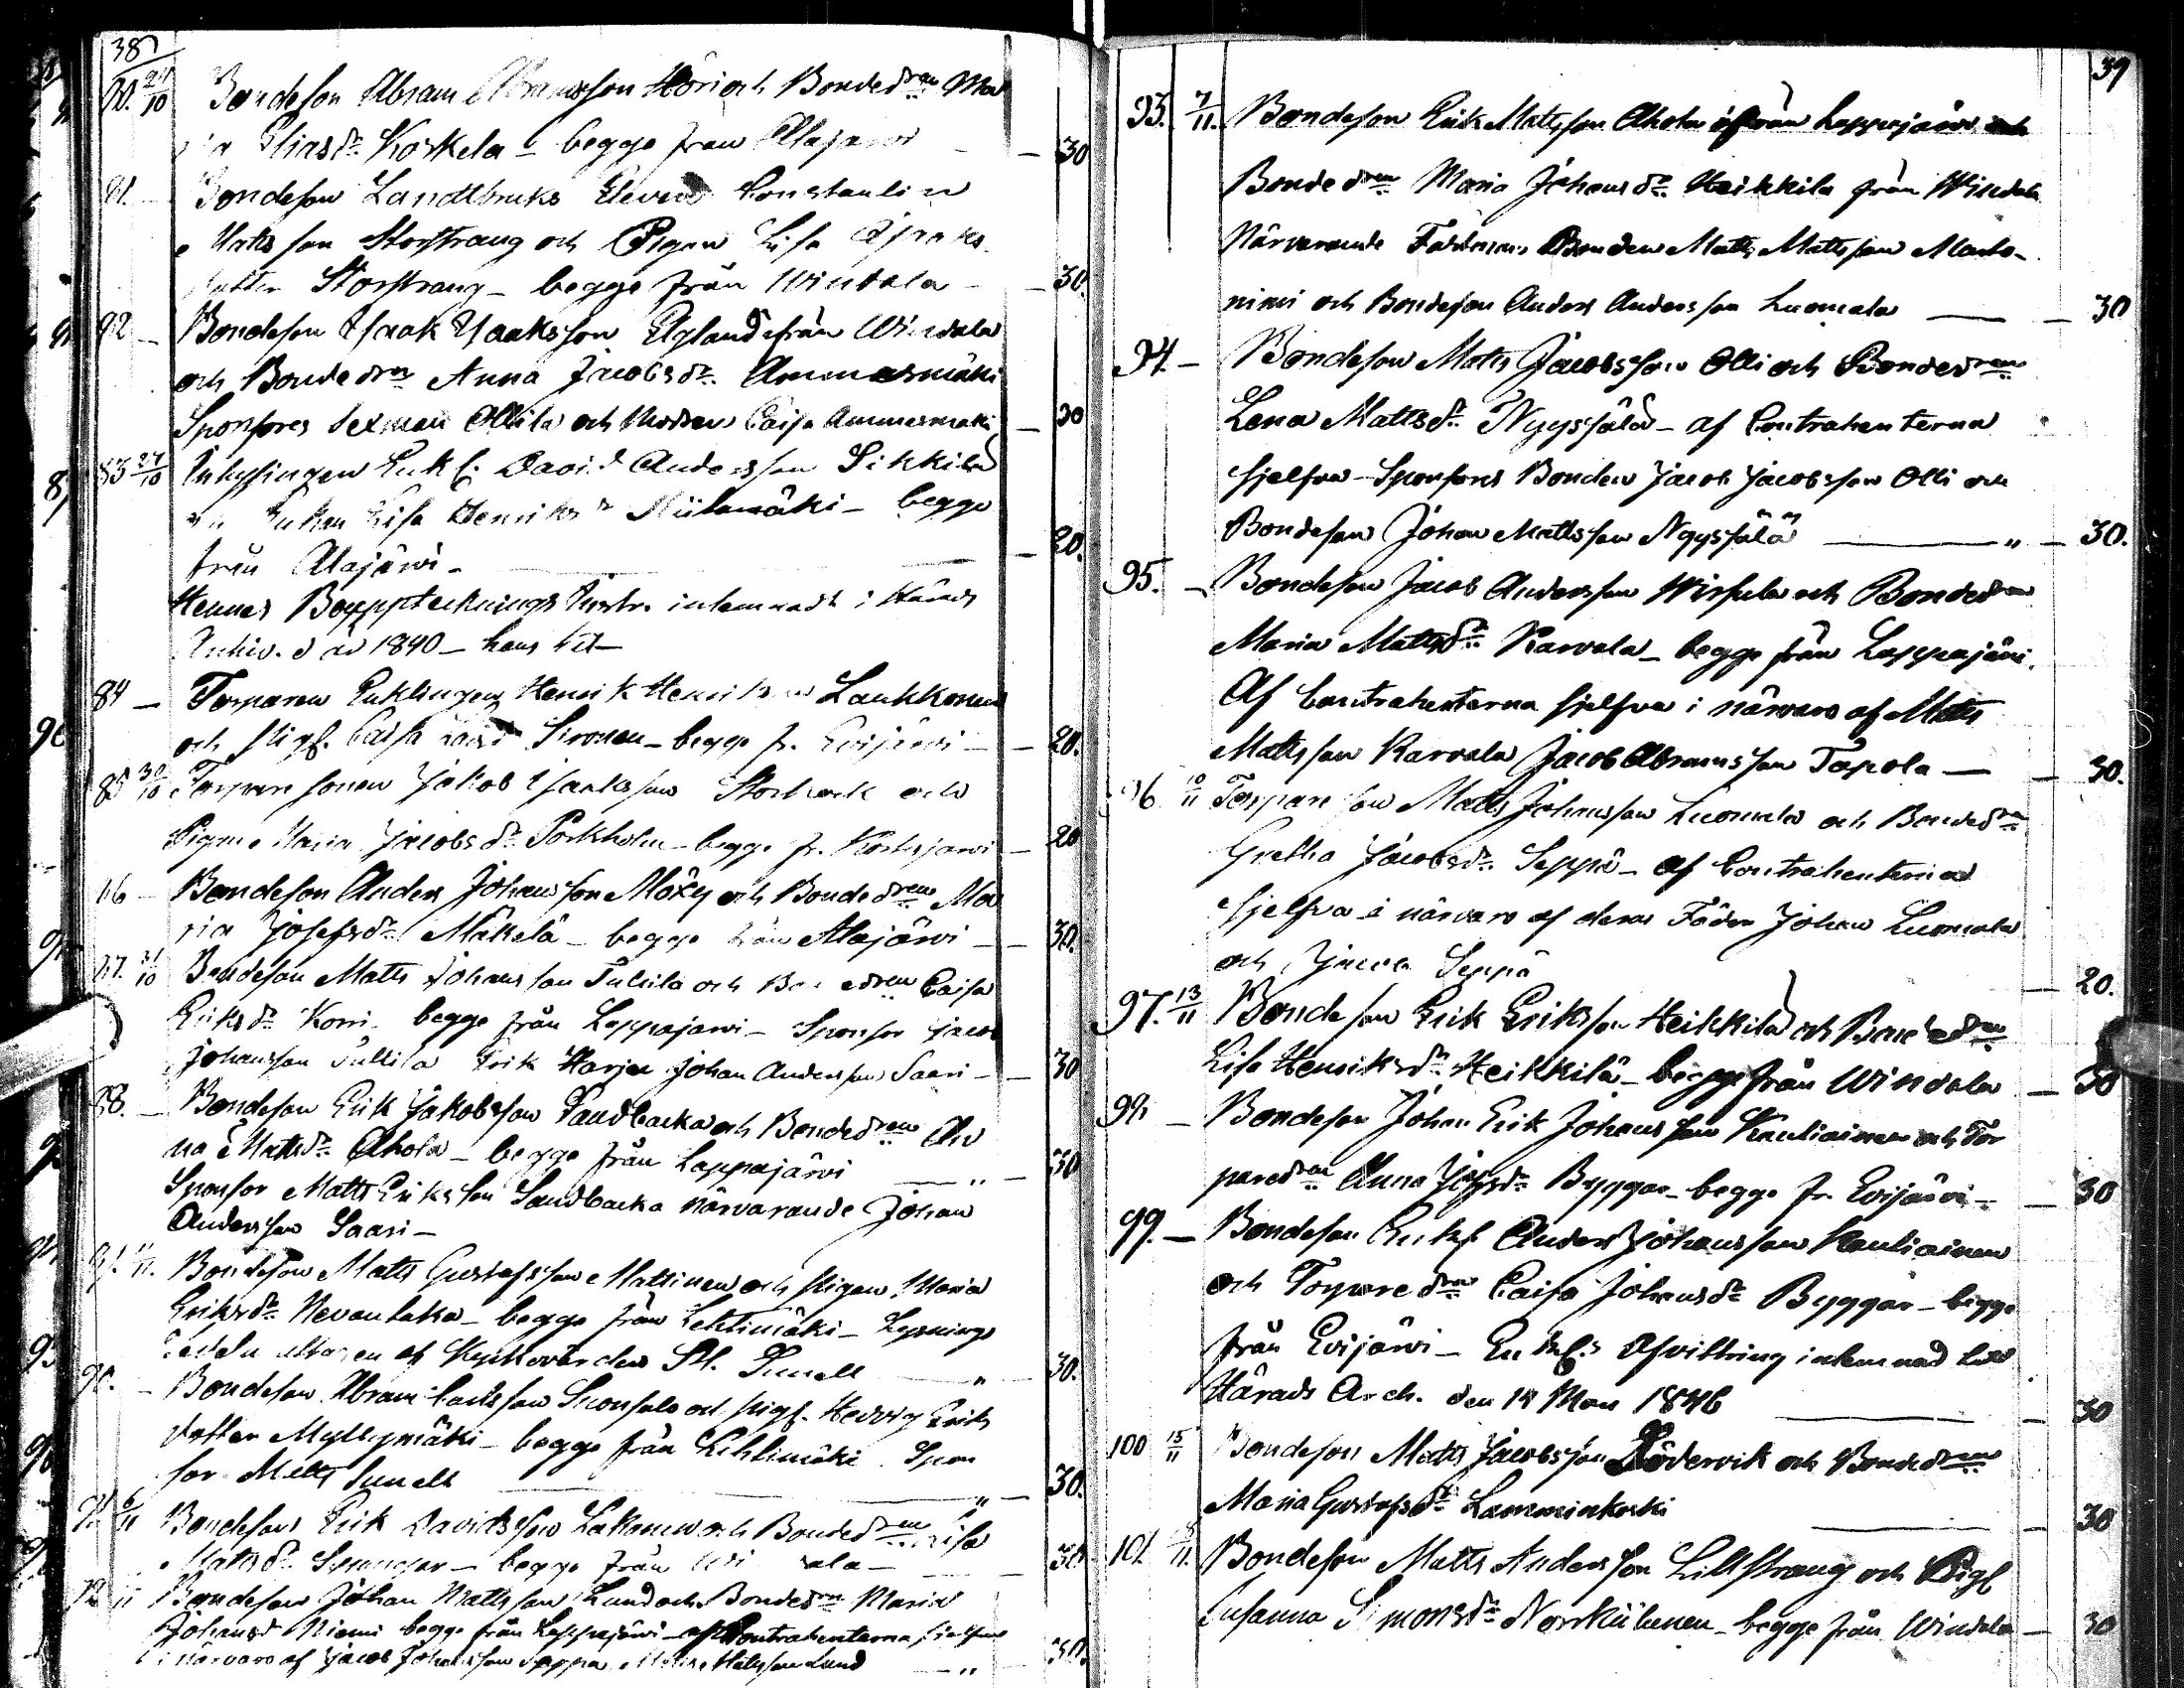 38
80. 24/10 Bondeson Abram Abramsson Höri och Bondedrn Ma
ria Eliasdr Koskela - begge från Alajärvi - 30
81. - Bondeson Landtbruks Eleven Constantin
Mattsson Storstrang och Pigan Lisa Isaks
dotter Storstrang - begge från Windala - 30.
82 - Bondeson Isaak Isaaksson Eglund ifrån Windala
och Bondedrn Anna Jacobsdr. Ammesmäki
Sponsores Sexman Ollila och Caisa Ammesmäki - 30
83 27/10 Inhysingen Enkl. David Andersson Sikkila
Enkan Lisa Henriksdr Niilamäki - begge
från Alajärvi - 20.
Hennes Boupptecknings Instr. inlemnadt i Härads
Archiv. d år 1840 - hans
84 - Torparen Enklingen Henrik Henriksson Laukkonen
och Pigl. Caisa Sironen - begge fr. Evijärvi - 20.
85 30/10 Torpare sonen Jakob Isaksson Storback och
Pigan Maria Jacobsdr Porkholm - begge fr. Kortesjärvi - 20
86 - Bondeson Anders Johansson Möxy och Bondedrn Ma
ria Josefsdr Mäkelä - begge från Alajärvi - 30.
87. 31/10 Bondeson Matts Johansson Tullila och Bondedrn Caisa
Eriksdr Korri begge från Lappajärvi - Sponsor Jacob
Johansson Tullila Erik Harju Johan Andersson Saari - 30
88. - Bondeson Erik Jakobsson Sandbacka och Bondedrn An
na Mattsdr Ahola - begge från Lappajärvi - 30
Sponsor Matts Eriksson Sandbacka närvarande Johan
Andersson Saari -
Bondeson Matts Gustafsson Mattinen och Pigan Maria
Eriksdr Nevanlaka - begge från Lehtimäki - Lysnings
Sedeln uttagen af Kyrkovärden Sunell - 30.
90. - Bondeson Abram Carlsson Suonsalo och Pigl. Hedvig Eriks
dotter Myllymäki - begge från Lehtimäki Spon
sor Matts Sunell - 30.
91. 6/11 Bondeson Erik Davidsson Lakaniemi och Bondedrn Lisa
Mattsdr Spangar - begge från Windala - 30
92 11 Bondeson Johan Mattsson Lund och Bondedrn Maria
Johansdr Niemi begge från Lappajärvi - af Contrahenterna sjelfva
i närvaro af Jacob Johansson Seppä Matts Mattsson Lund - 30.
39
93. 7/11. Bondeson Erik Mattsson Ahola ifrån Lappajärvi och
Bondedrn Maria Johansdr Heikkila från Windala
Närvarande Bonden Matts Mattsson Marto-
nimi och Bondeson Anders Andersson Luomala - 30
94. - Bondeson Matts Jacobsson Olli och Bondedrn
Lena Mattsdr Nyyssälä - af Contrahenterna
sjelfva - Sponsores Bonden Jacob Jacobsson Olli och
Bondeson Johan Mattsson Nyyssälä - 30.
95. - Bondeson Jacob Andersson Wirkula och Bondedrn
Maria Mattsdr Karvala - begge från Lappajärvi.
Af Contrahenterna sjelfva i närvaro af Matts
Mattsson Karvala Jacob Abramsson Tapola - 30.
96 10/11 Torpareson Matts Johansson Luomala och Bondedr
Gretha Jacobsdr Seppä - af Contrahenterna
sjelfva i närvaro af deras Fäder Johan Luomala
och Jacob Seppä - 20.
97. 13/11 Bondeson Erik Eriksson Heikkila och Bondedrn
Lisa Henriksdr Heikkilä - begge från Windala - 30
98 - Bondeson Johan Erik Johansson Kauliainen och Tor
paredrn Anna Byggar - begge fr. Evijärvi - 30
99. - Bondeson Enkl Anders Johansson Kauliainen
och Torparedrn Caisa Johansdr Byggar - begge
från Evijärvi - Enkl:s Afvittring inlemnad till
Härads Arch. den 14 Mars 1846 - 30
100 15/11 Bondeson Matts Jacobsson Södervik och Bondedrn
Maria Gustafsdr Lamminkoski - 30
101. 18/11. Bondeson Matts Andersson Lillstrang och Pigl
Susanna Simonsdr Norrkiilunen - begge från Windala - 30